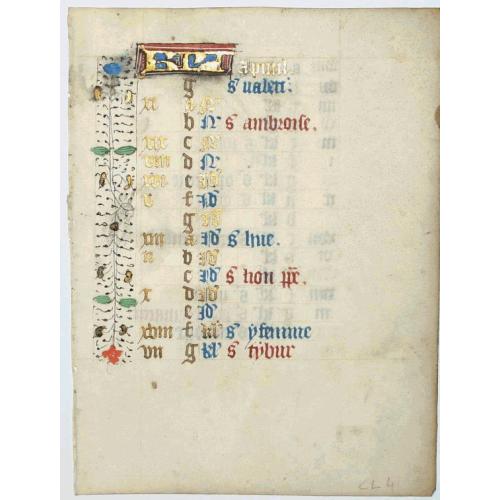 KL Apuril
g s ualeri.
xi a N
b N s ambroise.
xix c N
viii d N
xvi e N
v f Id
g Id
xiii a Id s lue.
ii b Id
c Id s lion ppe.
x d Id
e Id
xviii f kl s yfemme
vii g kl s tybur
CL 4